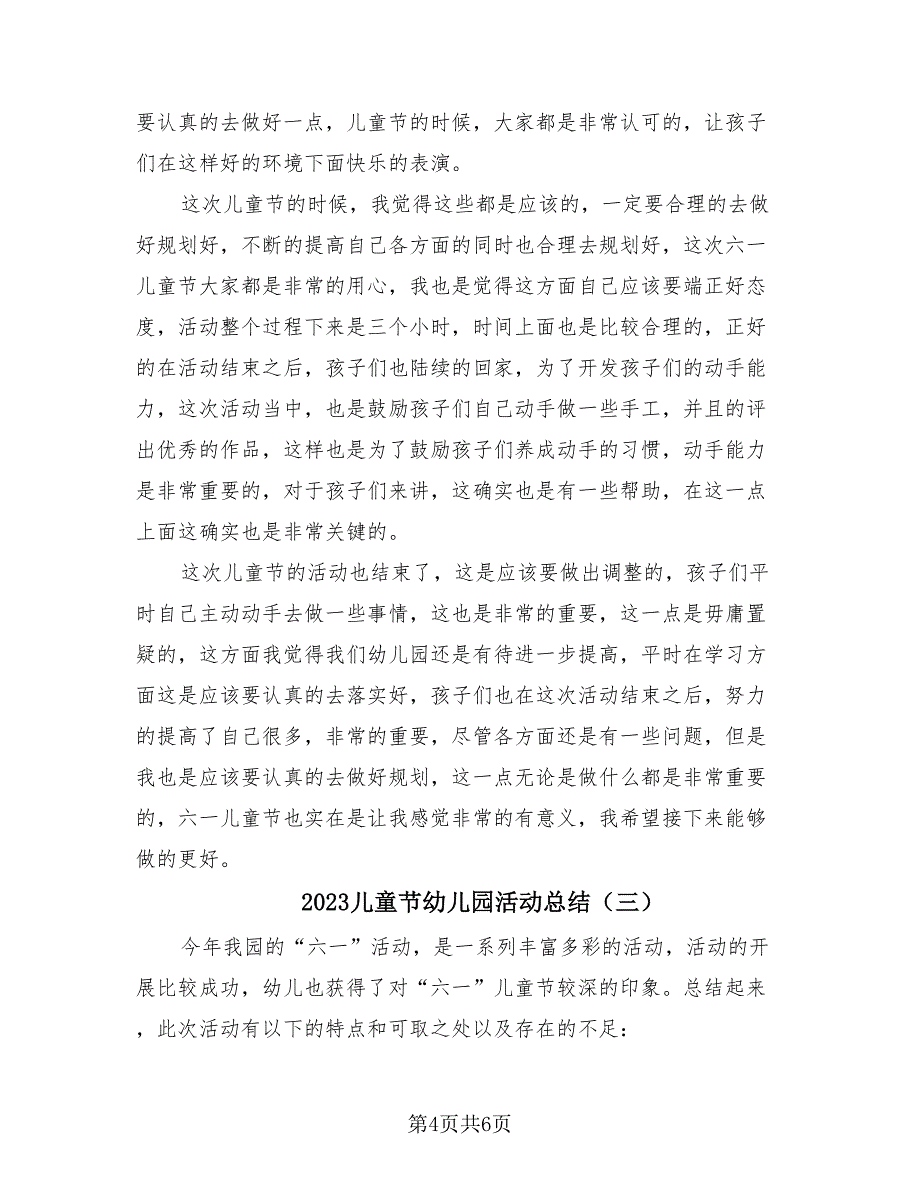 要认真的去做好一点，儿童节的时候，大家都是非常认可的，让孩子
们在这样好的环境下面快乐的表演。
这次儿童节的时候，我觉得这些都是应该的，一定要合理的去做
好规划好，不断的提高自己各方面的同时也合理去规划好，这次六一
儿童节大家都是非常的用心，我也是觉得这方面自己应该要端正好态
度，活动整个过程下来是三个小时，时间上面也是比较合理的，正好
的在活动结束之后，孩子们也陆续的回家，为了开发孩子们的动手能
力，这次活动当中，也是鼓励孩子们自己动手做一些手工，并且的评
出优秀的作品，这样也是为了鼓励孩子们养成动手的习惯，动手能力
是非常重要的，对于孩子们来讲，这确实也是有一些帮助，在这一点
上面这确实也是非常关键的。
这次儿童节的活动也结束了，这是应该要做出调整的，孩子们平
时自己主动动手去做一些事情，这也是非常的重要，这一点是毋庸置
疑的，这方面我觉得我们幼儿园还是有待进一步提高，平时在学习方
面这是应该要认真的去落实好，孩子们也在这次活动结束之后，努力
的提高了自己很多，非常的重要，尽管各方面还是有一些问题，但是
我也是应该要认真的去做好规划，这一点无论是做什么都是非常重要
的，六一儿童节也实在是让我感觉非常的有意义，我希望接下来能够
做的更好。
2023儿童节幼儿园活动总结（三）
今年我园的“六一”活动，是一系列丰富多彩的活动，活动的开
展比较成功，幼儿也获得了对“六一”儿童节较深的印象。总结起来
，此次活动有以下的特点和可取之处以及存在的不足：
第4页共6页